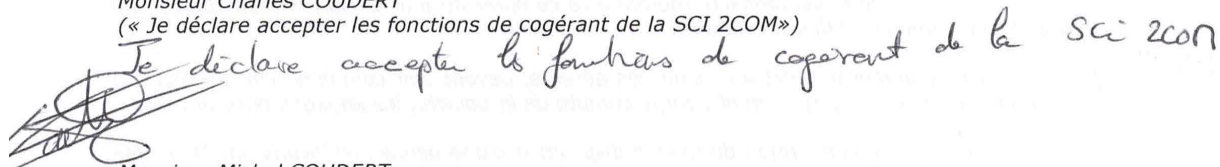 Monsieur Charles COUDERT
(« Je déclare accepter les fonctions de cogérant de la SCI 2COM»)
Je déclare accepter les fonctions de cogérant de la SCi 2COM
Monsieur Michel COUDERT